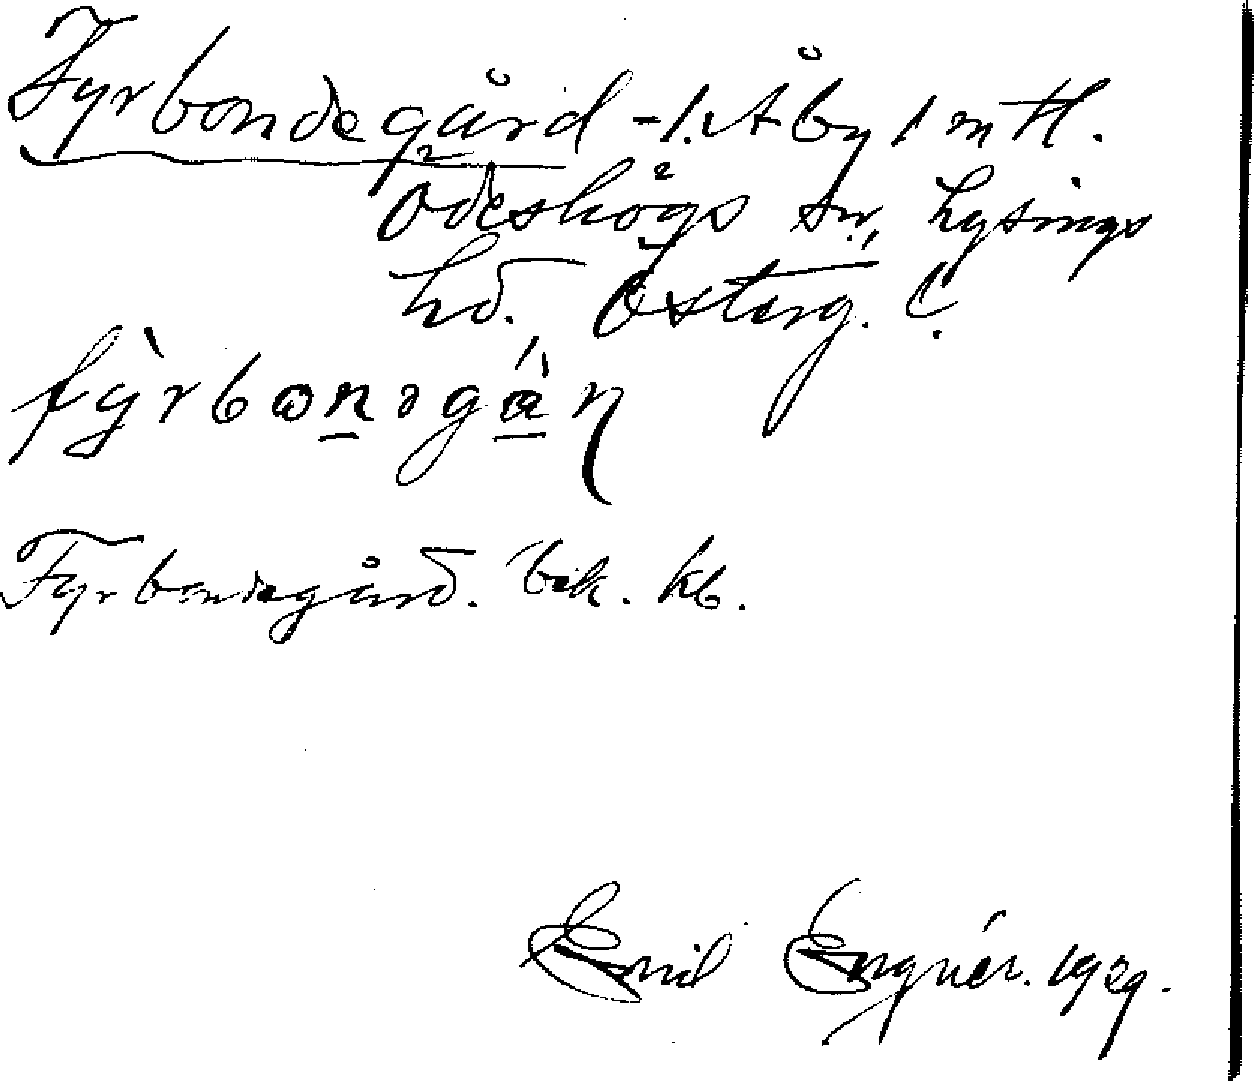 Fyrbondegård - i Åby 1 mtl.
Ödeshögs sn, Lysings
hd. Österg.
fỳrbɷnəgǻɳ
Fyrbondegård. bek. kb.
Emil Engnér. 1929.